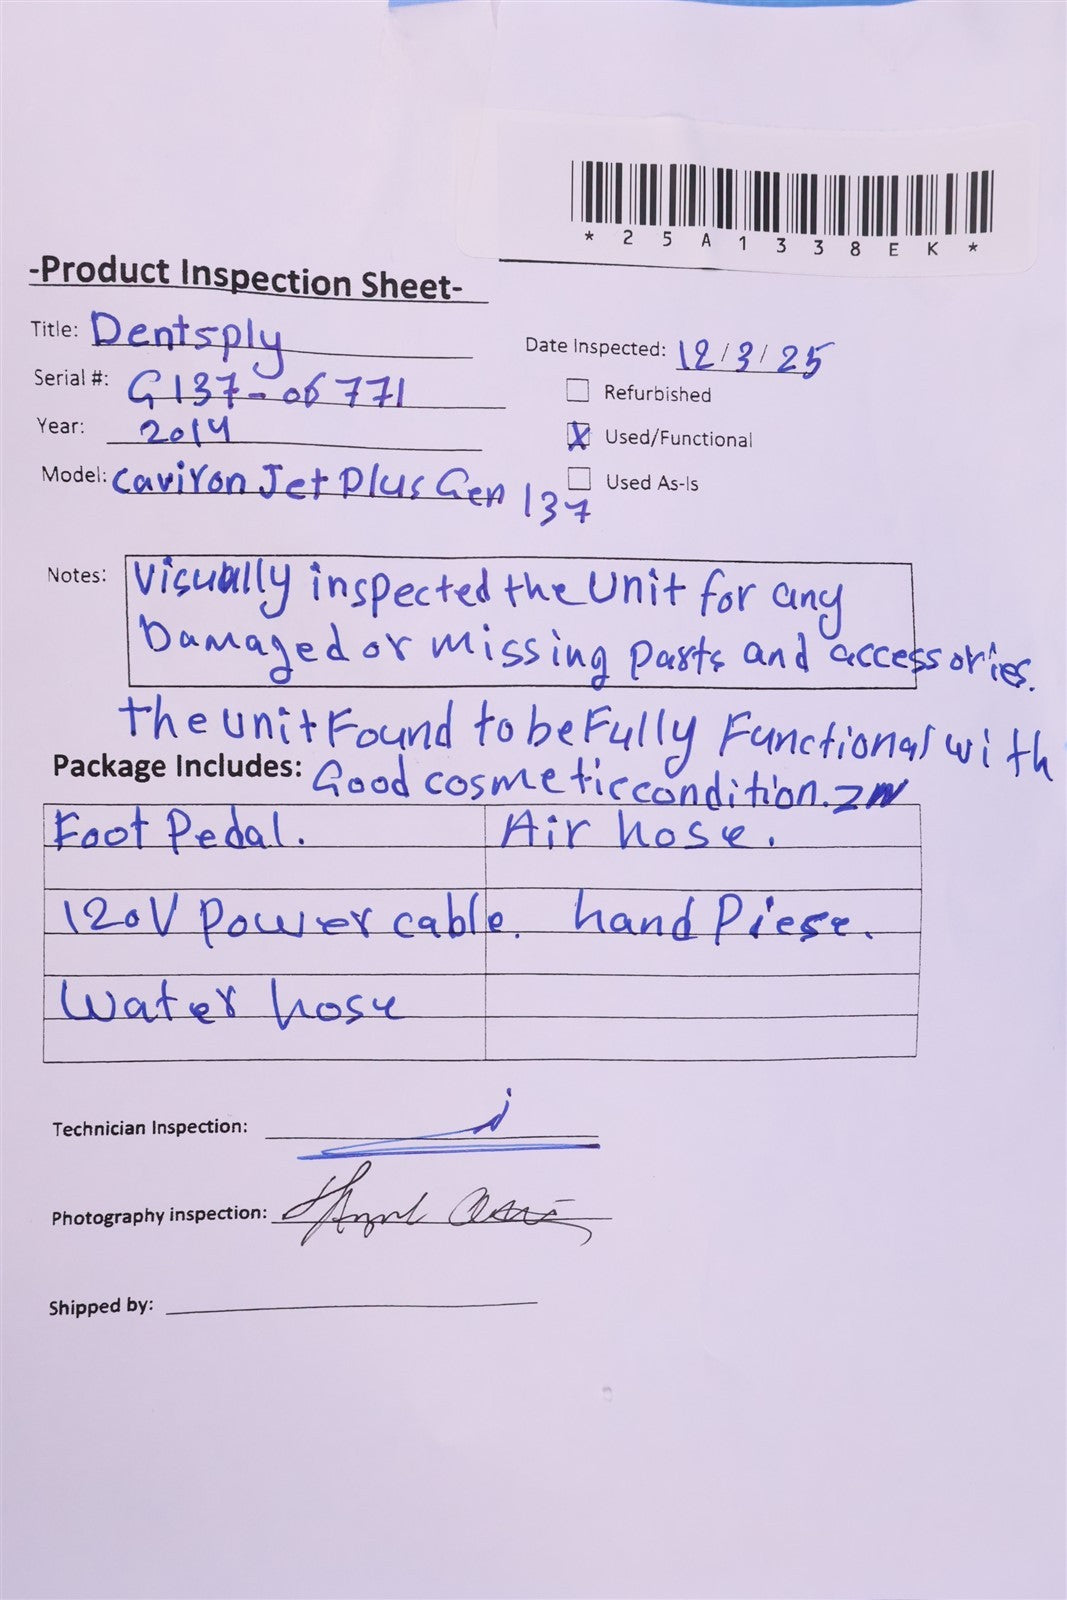 * 2 5 A 1 3 3 8 E K *
-Product Inspection Sheet-
Title: Dentsply
Date Inspected: 12/3/25
Serial #: G137-06771
Refurbished
Year: 2014
X Used/Functional
Model: caviron Jet Plus Gen 137
Used As-Is
Notes: Visually inspected the Unit for any
Damaged or missing parts and accessories.
the unit Found to be Fully Functional with
Good cosmetic condition. ZW
Package Includes:
Foot Pedal. Air hose.
120V Power cable. hand Piese.
Water hose
Technician Inspection:
Photography inspection:
Shipped by: